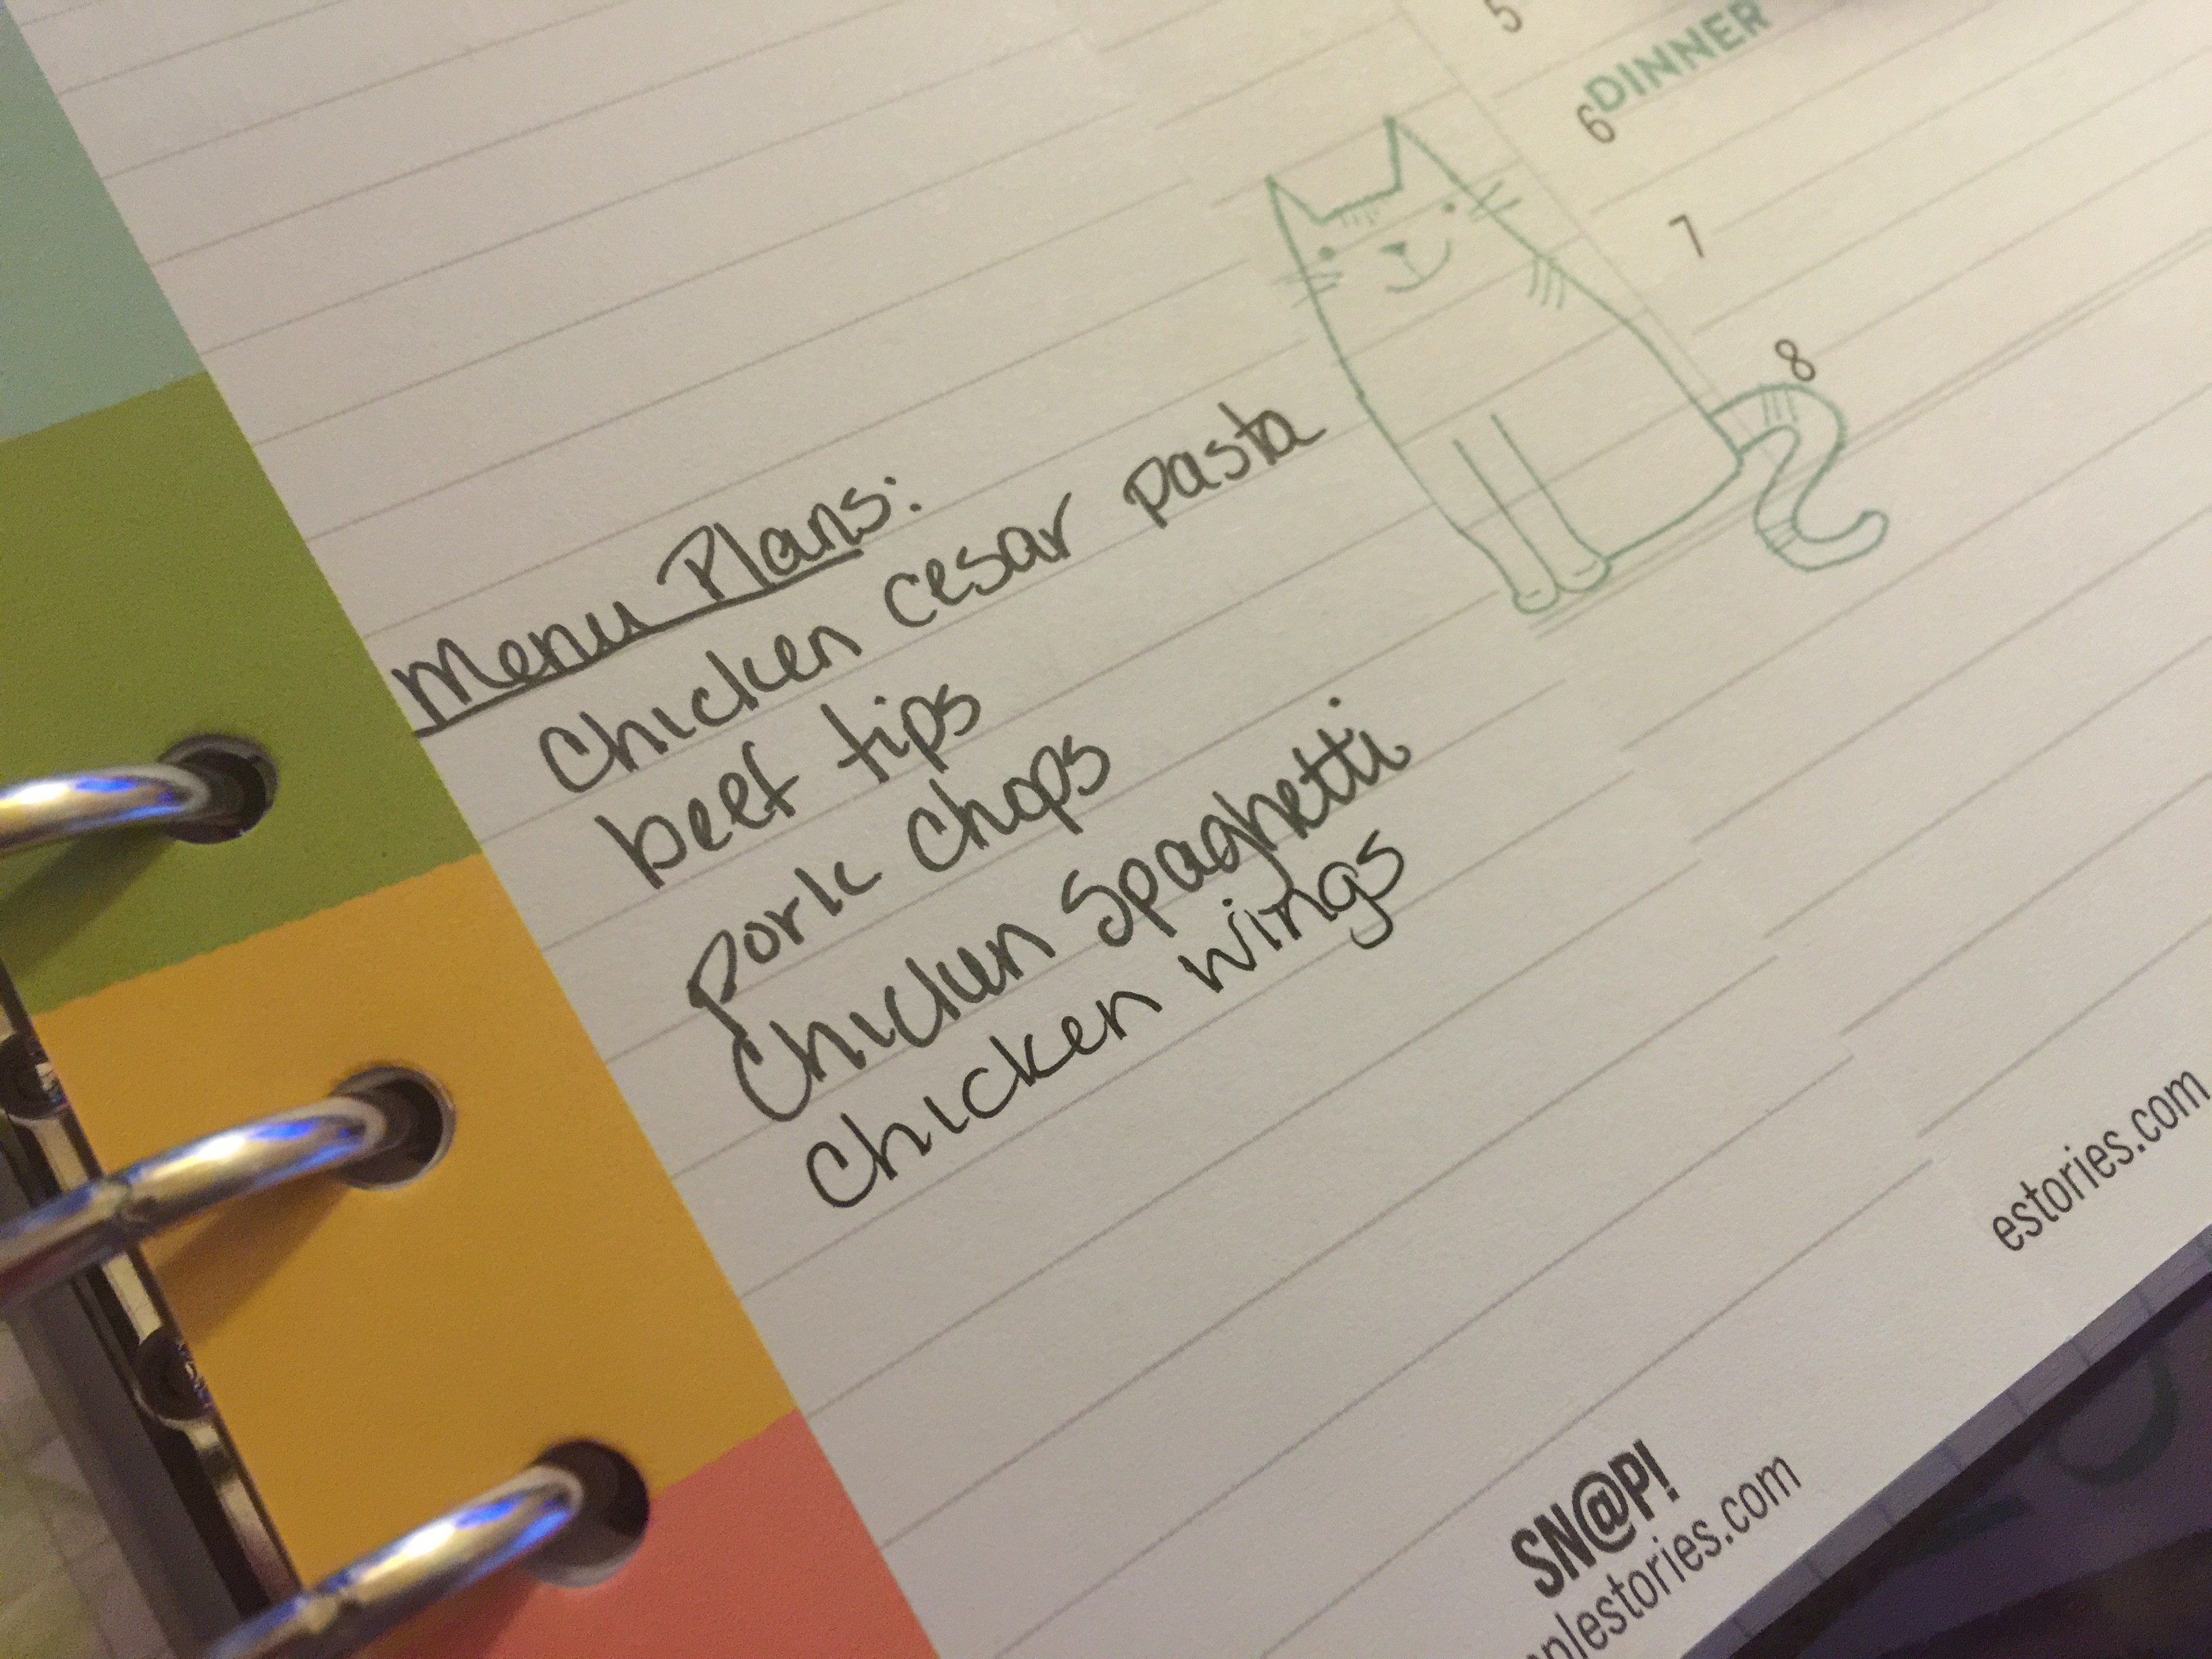 5
DINNER
6
7
8
Menu Plans:
Chicken cesar pasta
beef tips
Pork Chops
Chicken Spaghetti
Chicken wings
estories.com
SN@P!
plestories.com